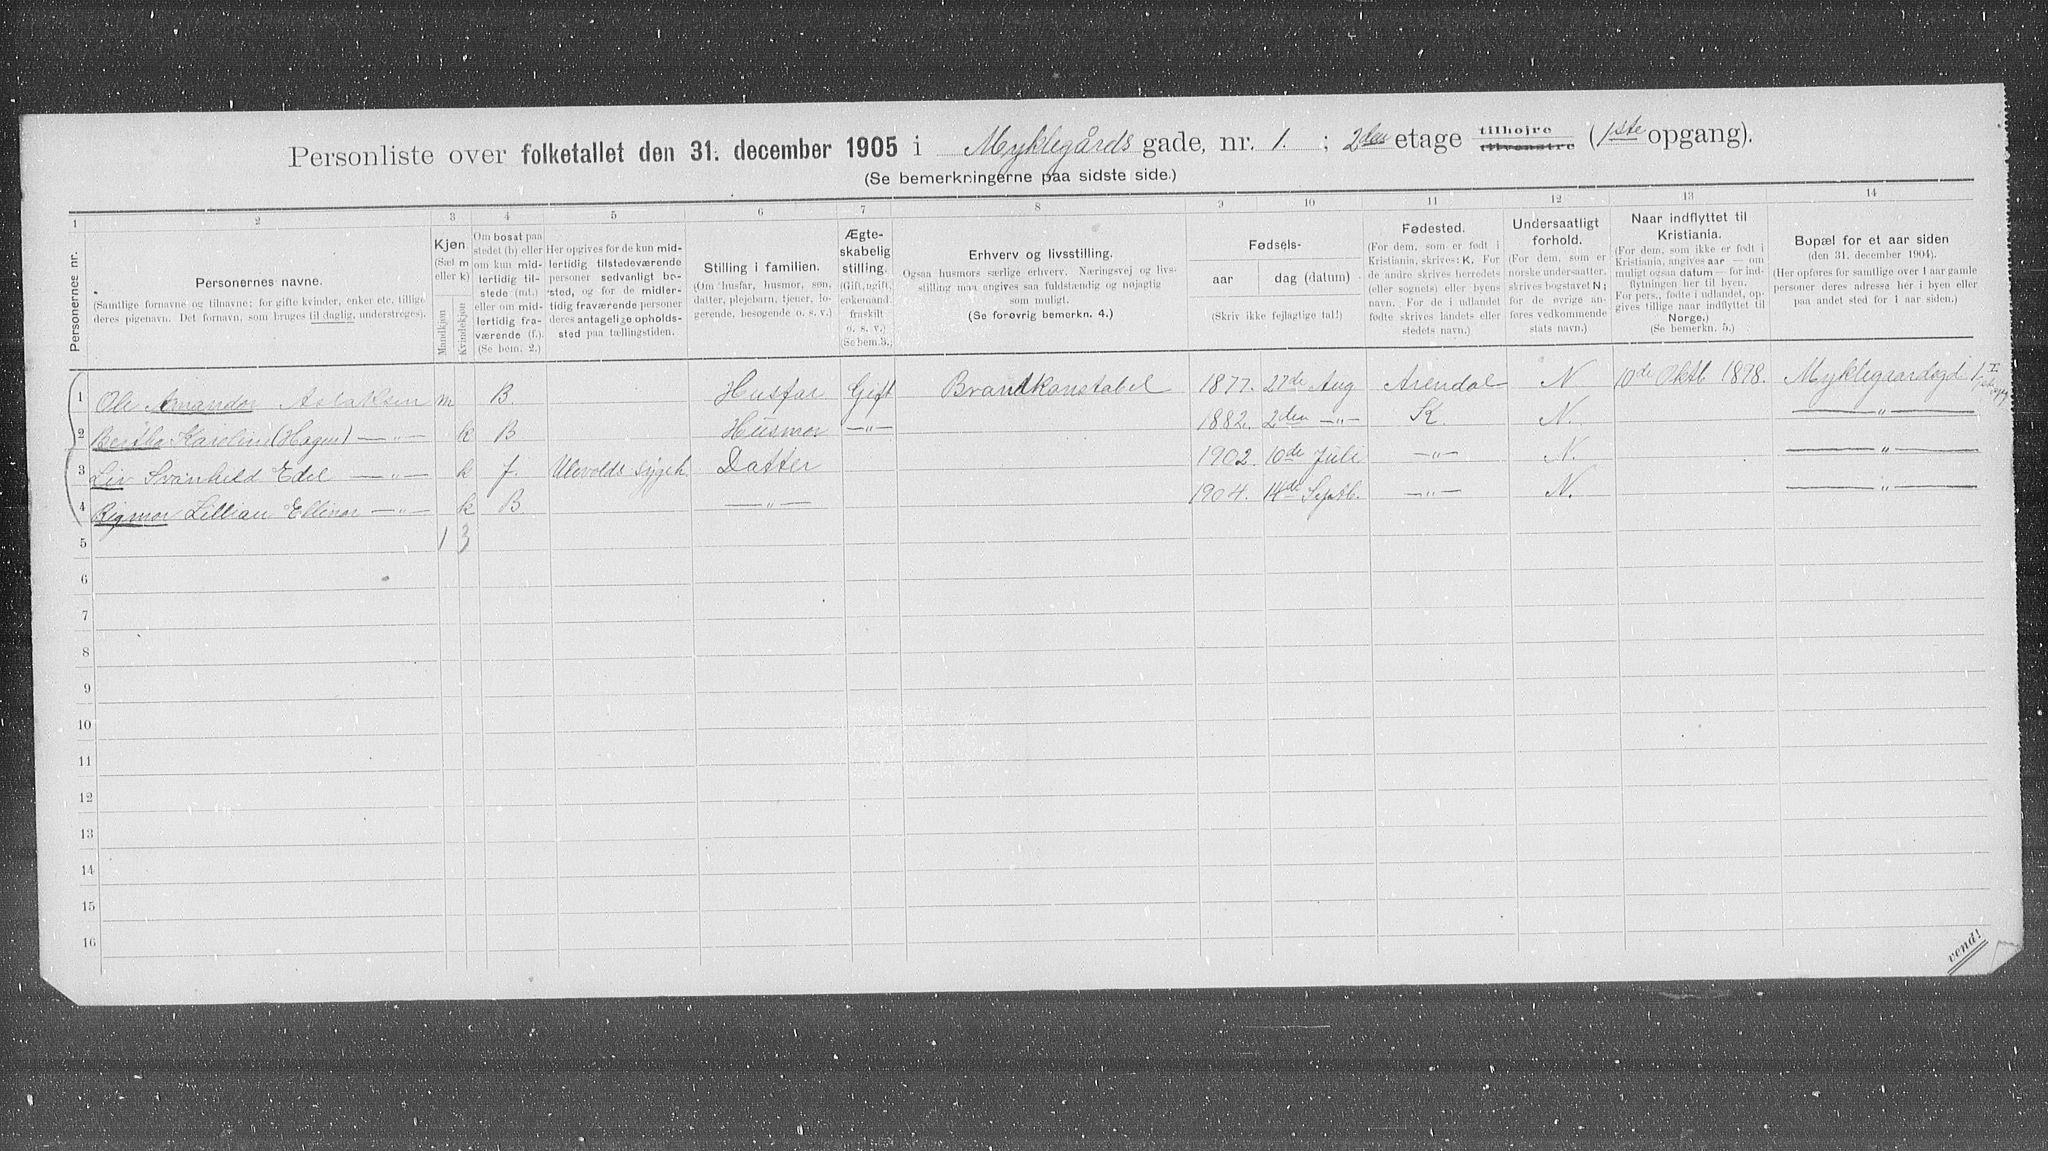 Personliste over folketallet den 31. december 1905 i Myklegårds gade, nr. 1. ; 2den etage tilhøjre tilvenstre (1ste opgang).
(Se bemerkningerne paa sidste side.)
1 2 3 4 5 6 7 8 9 10 11 12 13 14
Personernes nr.
Personernes navne.
(Samtlige fornavne og tilnavne; for gifte kvinder, enker etc. tillige deres pigenavn. Det fornavn, som bruges til daglig, understreges).
Kjøn
(Sæt m eller k)
Mandkjøn
Kvindekjøn
Om bosat paa stedet (b) eller om kun midlertidig tilstede (mt.) eller om midlertidig fraværende (f.) (Se bem. 2.)
Her opgives for de kun midlertidig tilstedeværende personer sedvanligt bosted, og for de midlertidig fraværende personer deres antagelige opholdssted paa tællingstiden.
Stilling i familien.
(Om husfar, husmor, søn, datter, plejebarn, tjener, logerende, besøgende o. s. v.)
Ægteskabelig stilling.
(Gift, ugift, enkemand, fraskilt o. s. v.) (Se bem. 3.)
Erhverv og livsstilling.
Ogsaa husmors særlige erhverv. Næringsvej og livsstilling maa angives saa fuldstændig og nøjagtig som muligt.
(Se forøvrig bemerkn. 4.)
Fødsels-
aar
dag (datum)
(Skriv ikke fejlagtige tal!)
Fødested.
(For dem, som er født i Kristiania, skrives: K. For de andre skrives herredets (eller sognets) eller byens navn. For de i udlandet fødte skrives landets eller stedets navn.)
Undersaatligt forhold.
(For dem, som er norske undersaatter, skrives bogstavet N; for de øvrige anføres vedkommende stats navn.)
Naar indflyttet til Kristiania.
(For dem, som ikke er født i Kristiania, angives aar — om muligt ogsaa datum — for indflytningen her til byen. For pers., født i udlandet, opgives tillige naar indflyttet til Norge.)
(Se bemerkn. 5.)
Bopæl for et aar siden
(den 31. december 1904).
(Her opføres for samtlige over 1 aar gamle personer deres adresse her i byen eller paa andet sted for 1 aar siden.)
1 Ole Amandor Aslaksen m B Husfar Gift Brandkonstabel 1877. 27de Aug Arendal N 10de Oktb 1898. Myklegaardsgd 1
2 Bertha Karoline (Hagen) —„— k B Husmor —„— 1882. 2den —„— K. N. —„—
3 Liv Svanhild Edel —„— k f. Ulevolds sygeh. Datter 1902. 10de Juli —„— N. —„—
4 Rigmor Lillian Ellinor —„— k B. —„— 1904. 14de Septb. —„— N. —„—
5 1 3
6
7
8
9
10
11
12
13
14
15
16
vend!